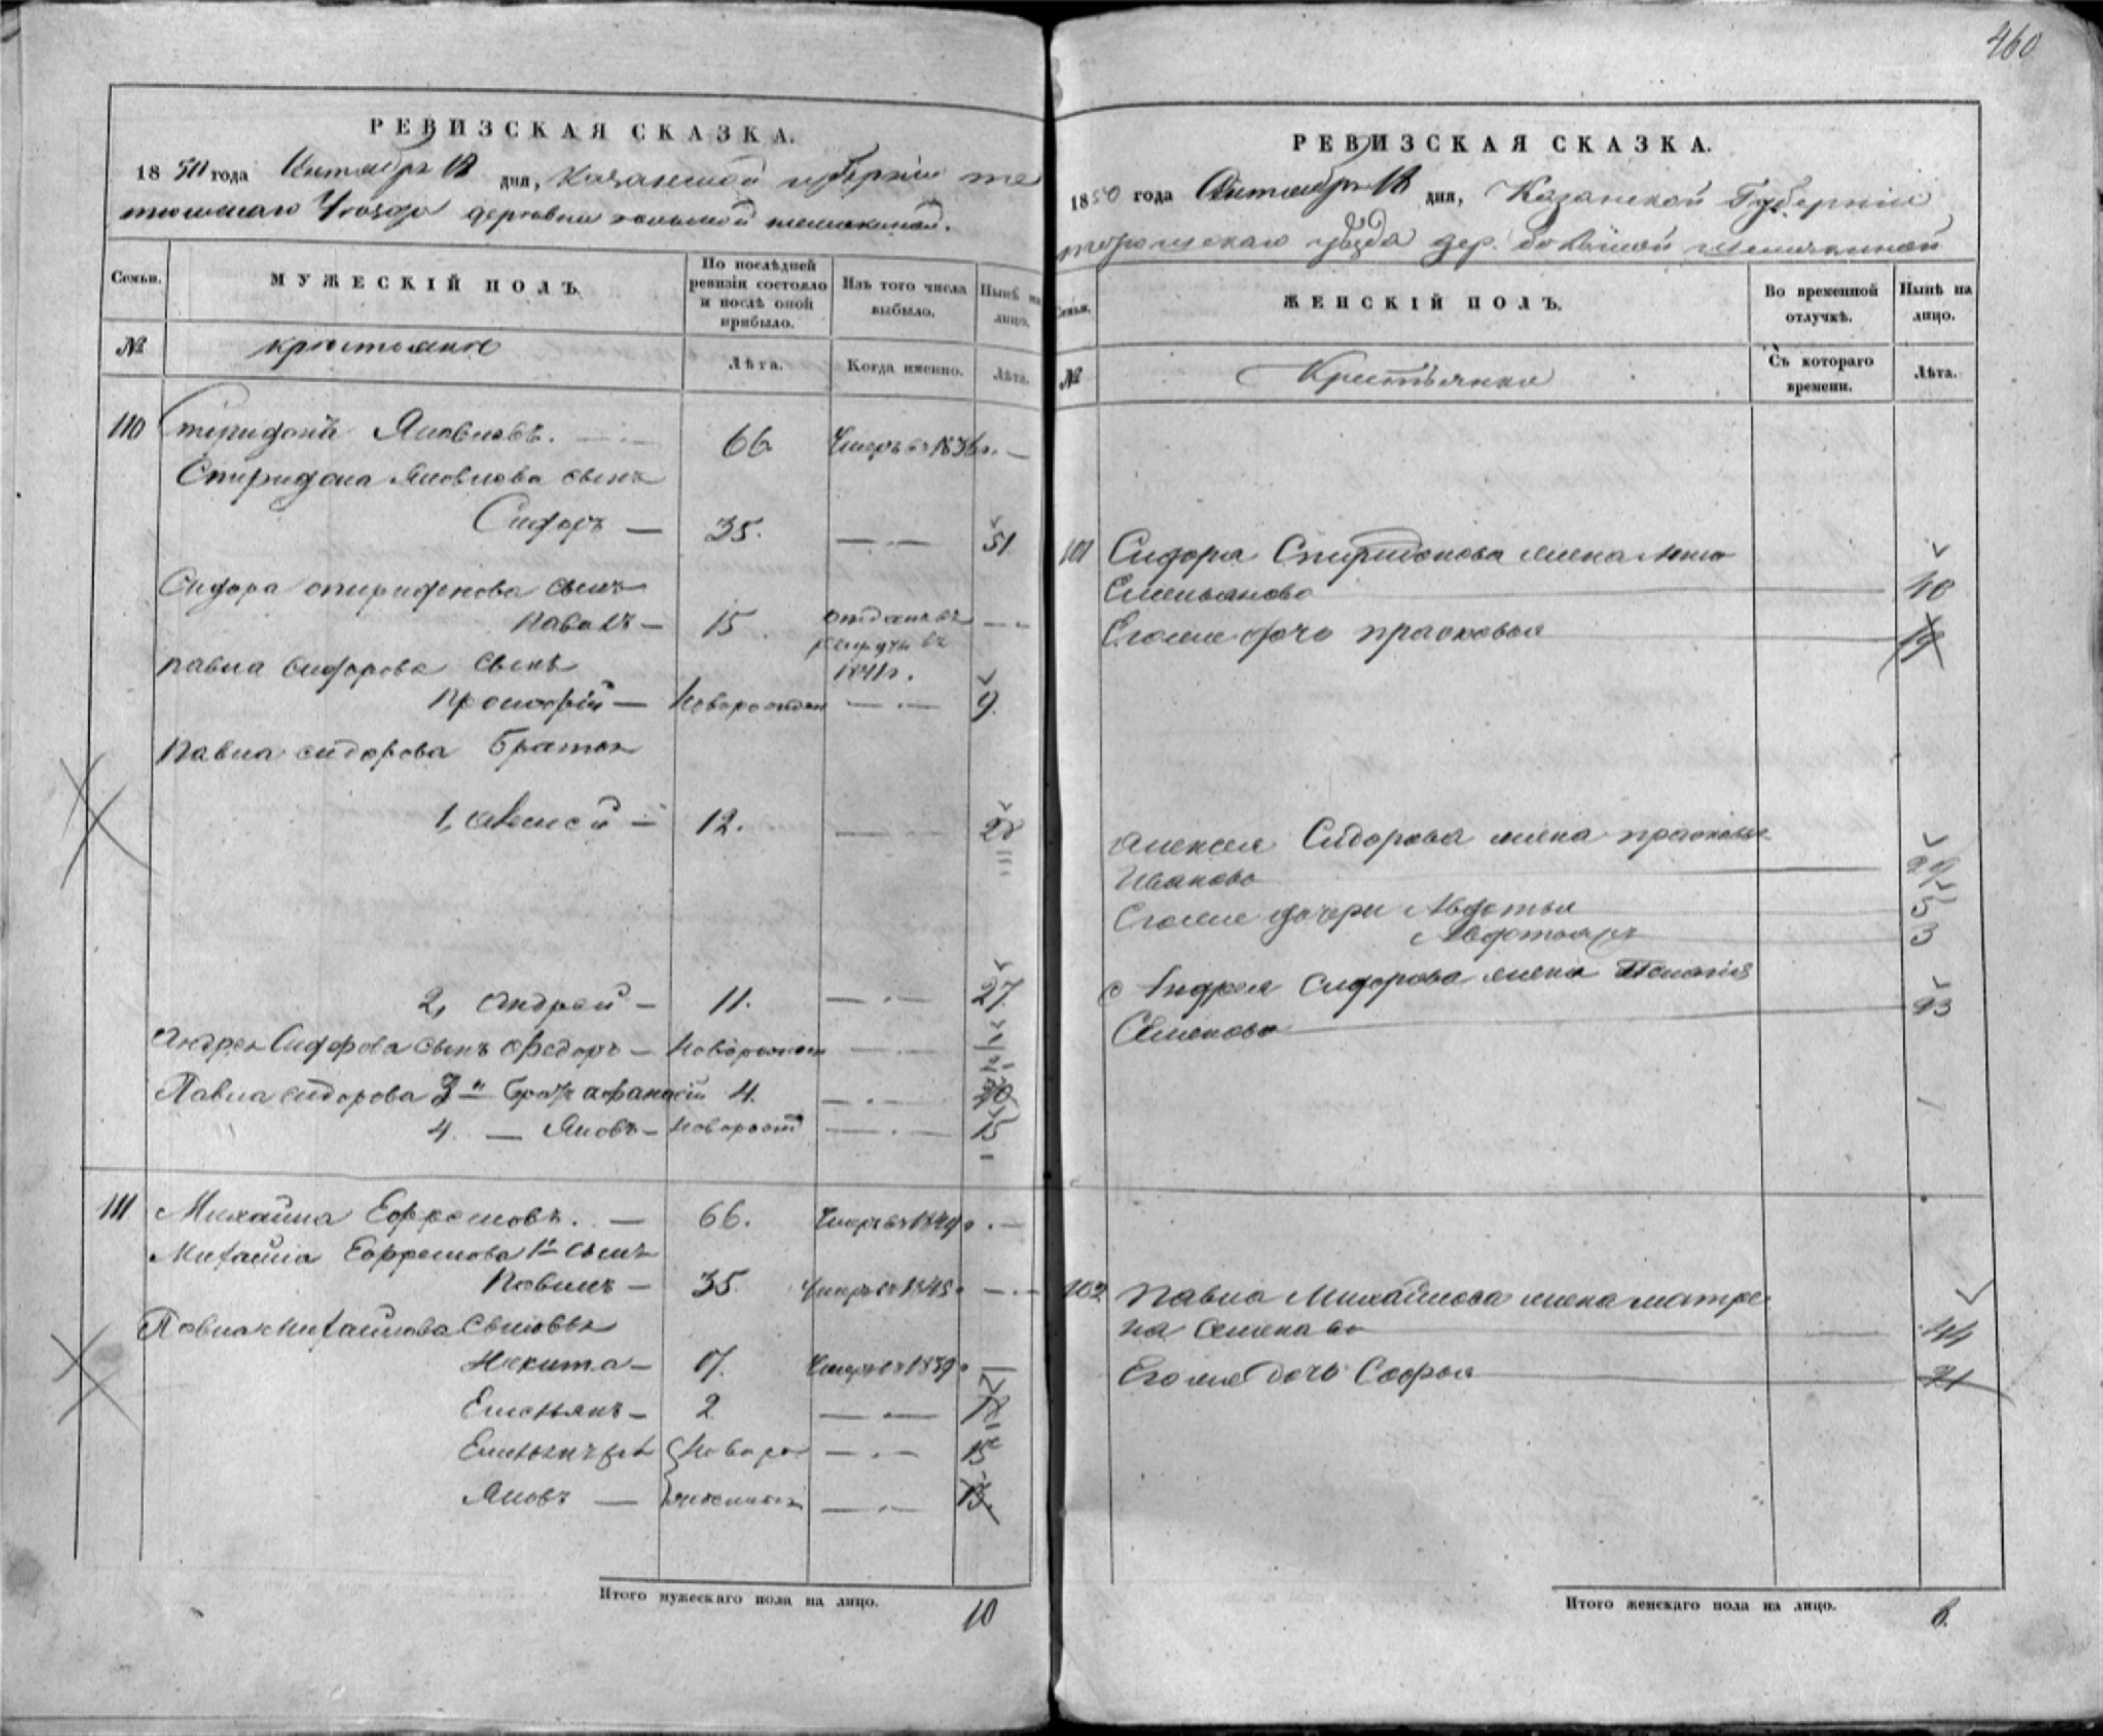 460
РЕВИЗСКАЯ СКАЗКА.
1850 года Октября 12 дня, Казанской губерніи те
тюшскаго Уезда деревни большой
Семьи.
МУЖЕСКІЙ ПОЛЪ.
По послѣдней ревизіи состояло и послѣ оной прибыло.
Изъ того числа выбыло.
Нынѣ на лицо.
№
крестьяне
Лѣта.
Когда именно.
Лѣта.
110 Спиридонъ Яковлевъ. 66 Умеръ въ 1836 г. —
Спиридона Яковлева сынъ
Сидоръ — 35. — 51
Сидора Спиридонова сынъ
Павелъ — 15. отданъ въ
рекруты въ
1841 г.
Павла Сидорова сынъ
Прокофій — новорожден — 9.
Павла Сидорова братья
1, Алексей — 12. — 28
2, Андрей — 11. — 27.
Андрея Сидорова сынъ Федоръ — новорожден —
Павла Сидорова 3й братъ Афанасій 4. — 20
4. — Яковъ — новорожд — 15
111 Михайла Ефремовъ. — 66. Умеръ в 1849 г. —
Михайла Ефремова 1й сынъ
Павелъ — 35. Умеръ въ 1845 г. —
Павла Михайлова сыновья
Никита — 17. Умеръ в 1839 г. —
Емельянъ — 2 — 18
Емельянъ {новоро — 15
Яковъ — }жденныи — 13.
Итого мужескаго пола на лицо. 10
РЕВИЗСКАЯ СКАЗКА.
1850 года Октября 12 дня, Казанской Губерніи
тетюшскаго уѣзда дер. большой
Семьи.
ЖЕНСКІЙ ПОЛЪ.
Во временной отлучкѣ.
Нынѣ на лицо.
№
Крестьянки
Съ котораго времени.
Лѣта.
101 Сидора Спиридонова жена
Емельянова
Его же дочь прасковья 19
Алексея Сидорова жена прасковья
Иванова 29
Его же дочери Авдотья 5
Авдотья 3
Андрея Сидорова жена Пелагія
Семенова 23
102 Павла Михайлова жена матре
на Семенова 44
Его же дочь Софья 21
Итого женскаго пола на лицо. 6.